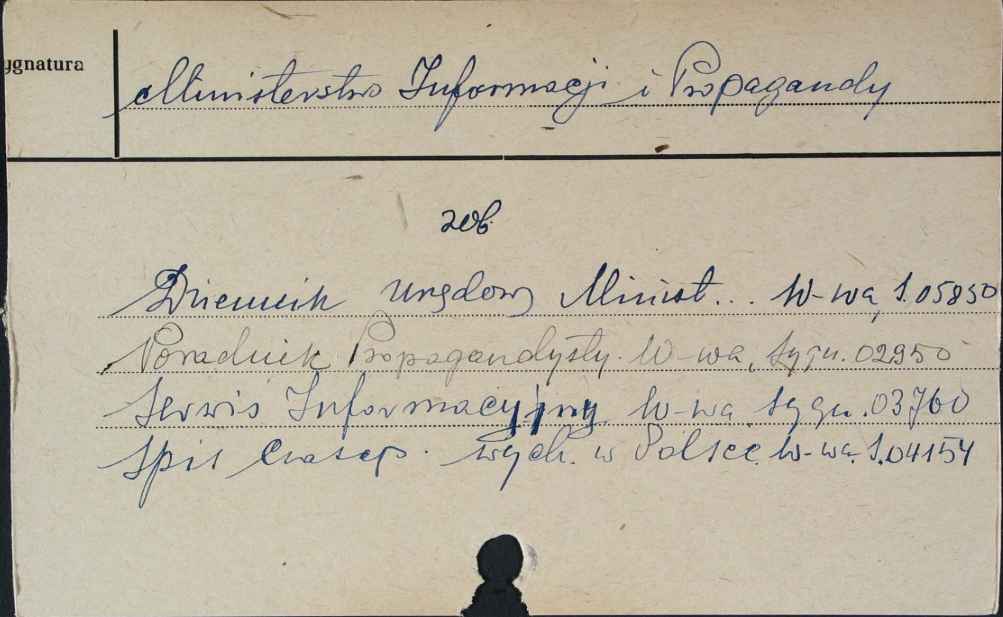 ygnatura
Ministerstwo Informacji i Propagandy
zob.
Dziennik Urzędowy Minist... W-wa, S.05850
Poradnik Propagandysty. W-wa, Sygn. 02950
Serwis Informacyjny W-wa Sygn. 03760
Spis Czasop. wych. w Polsce. W-wa. S.04154